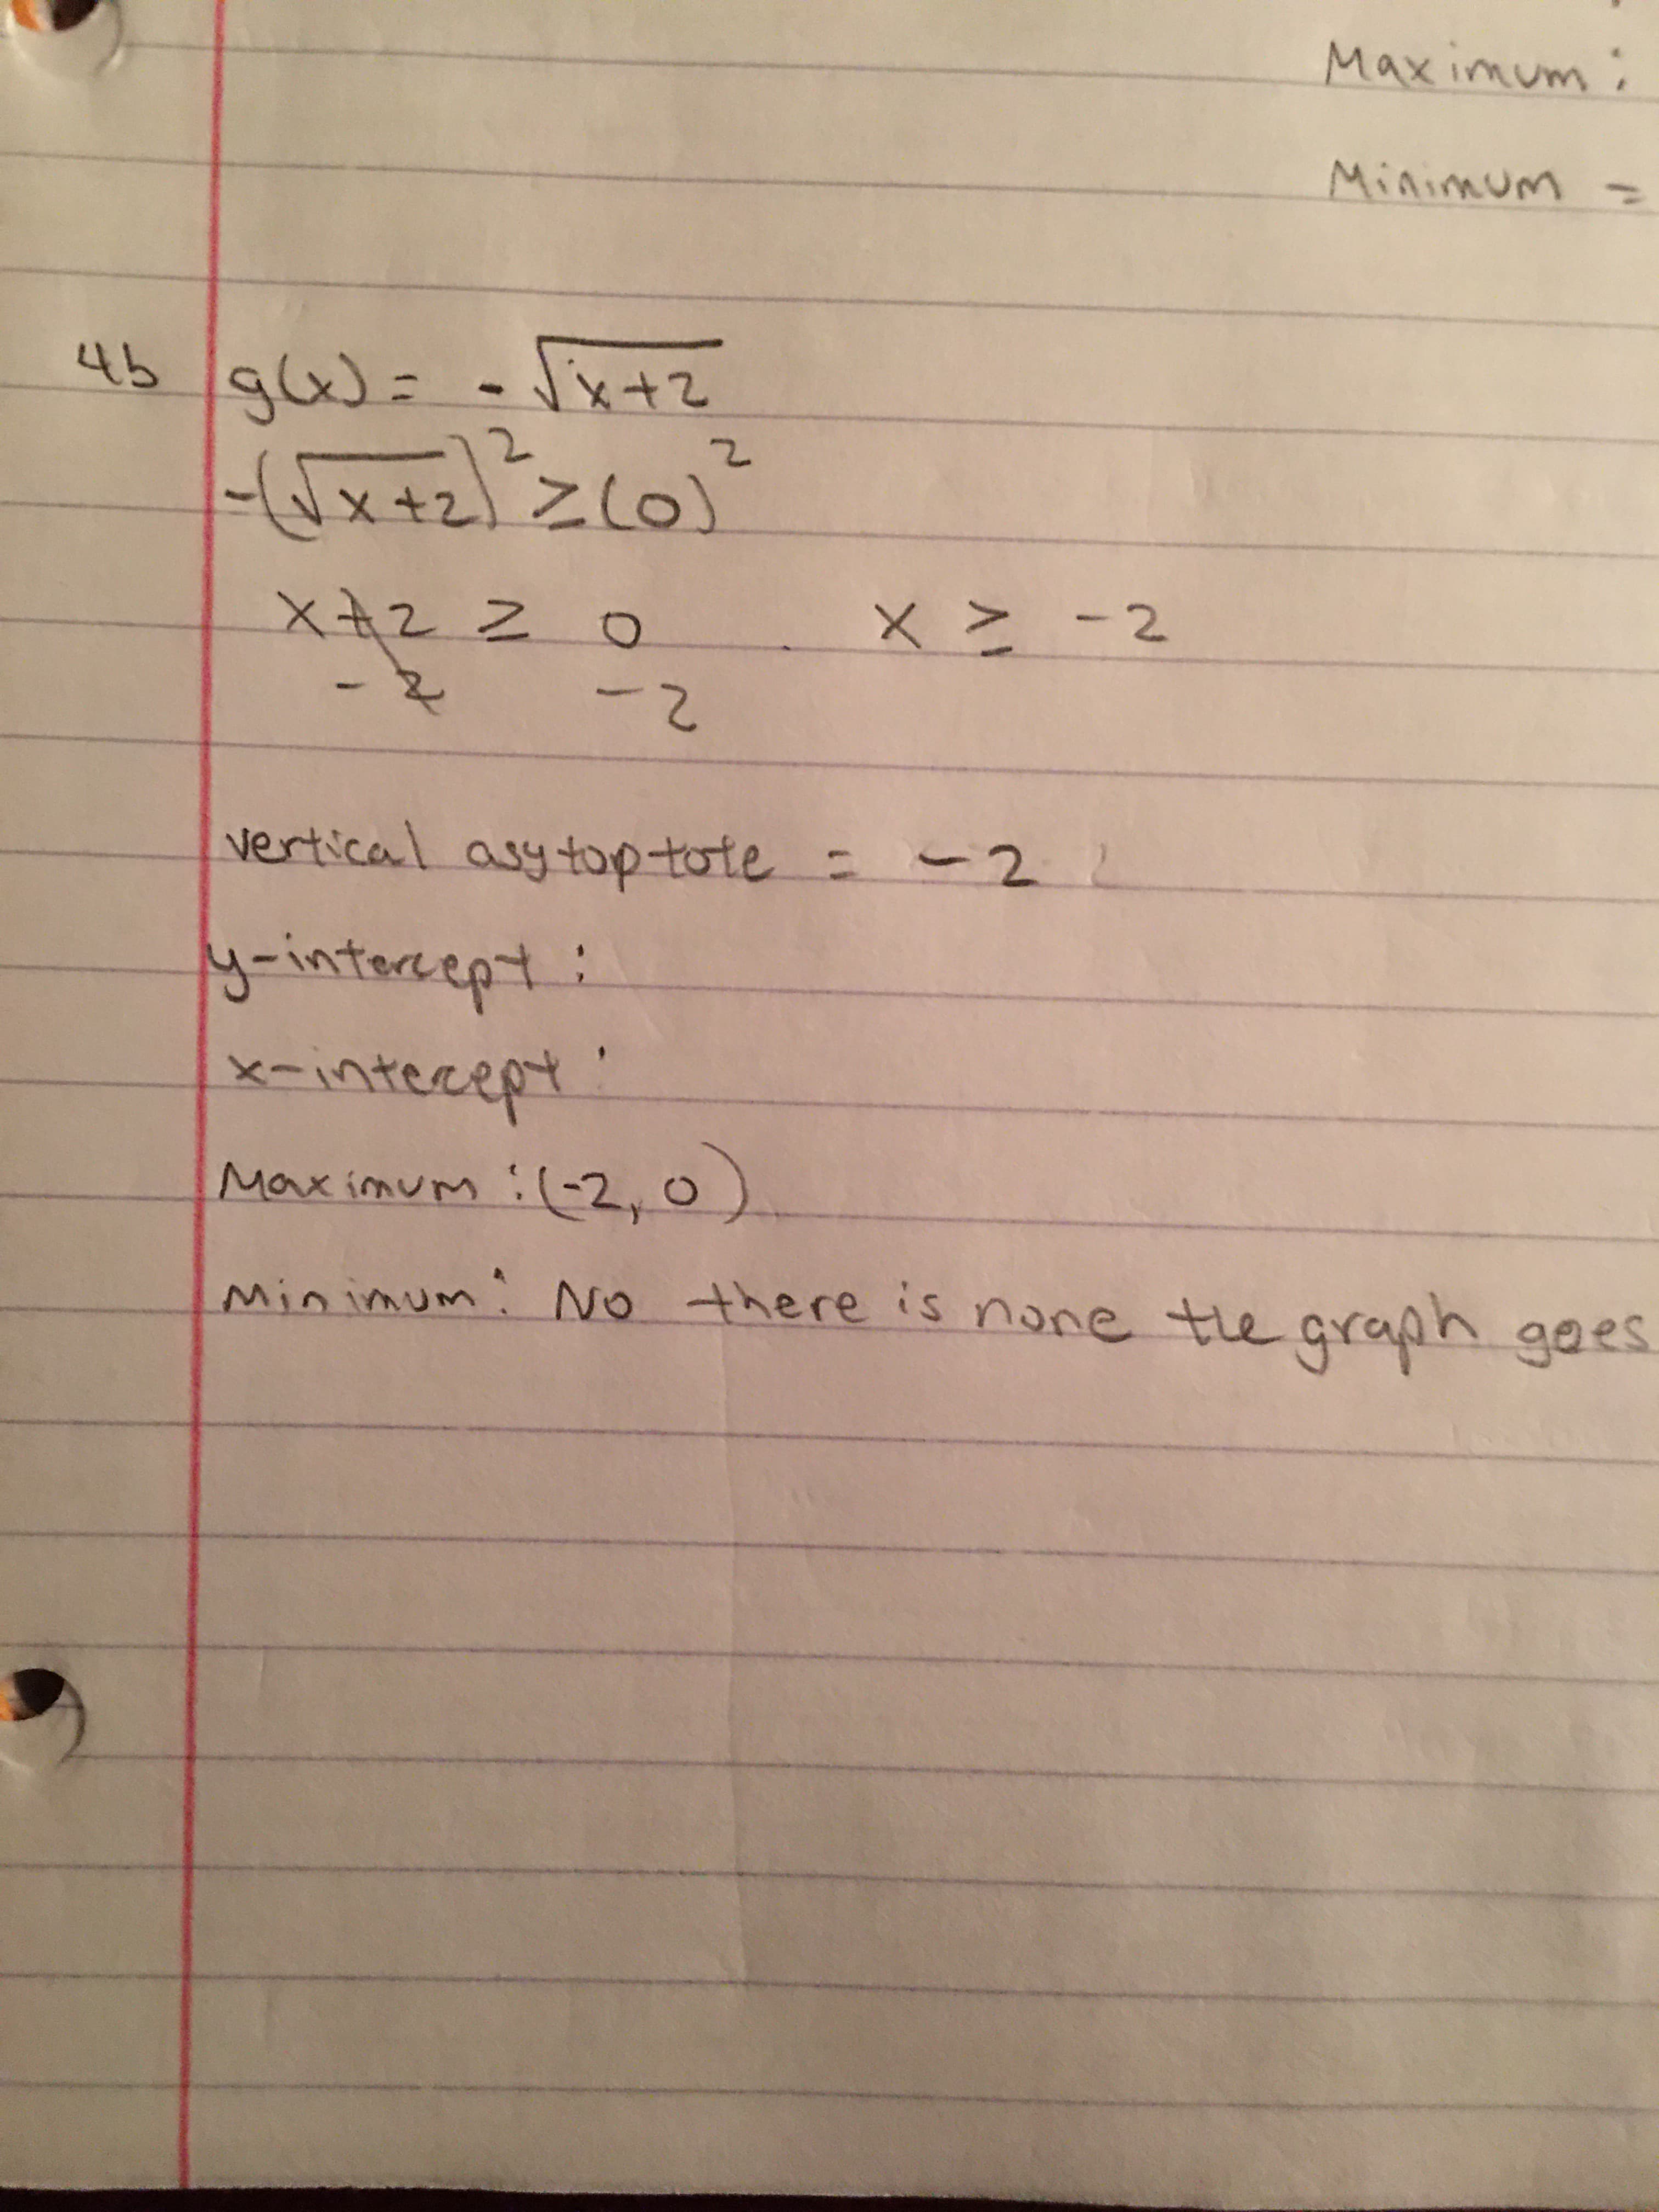 Maximum:
Minimum =
4b g(x) = -√x+2
-(√x+2)² ≥ (0)²
x+2 ≥ 0 . x ≥ -2
-2 -2
vertical asytoptote = -2
y-intercept:
x-intercept:
Maximum: (-2, 0)
Minimum: No there is none the graph goes